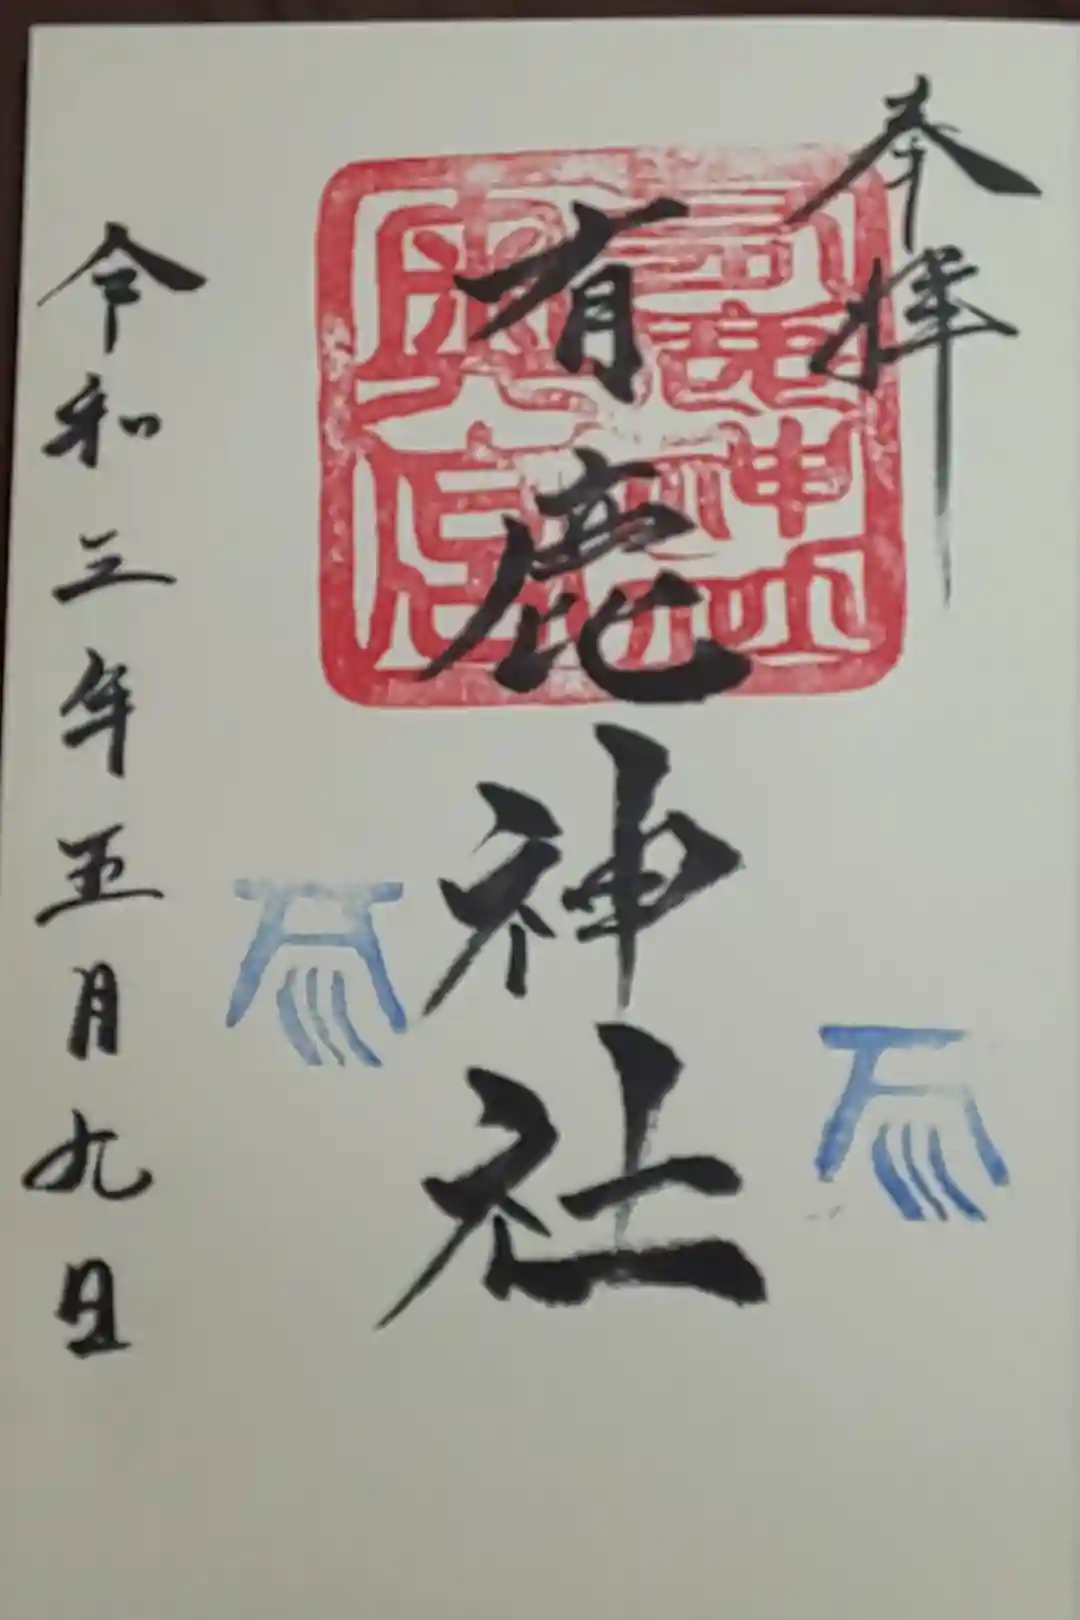 奉拝
有鹿神社
令和三年五月九日